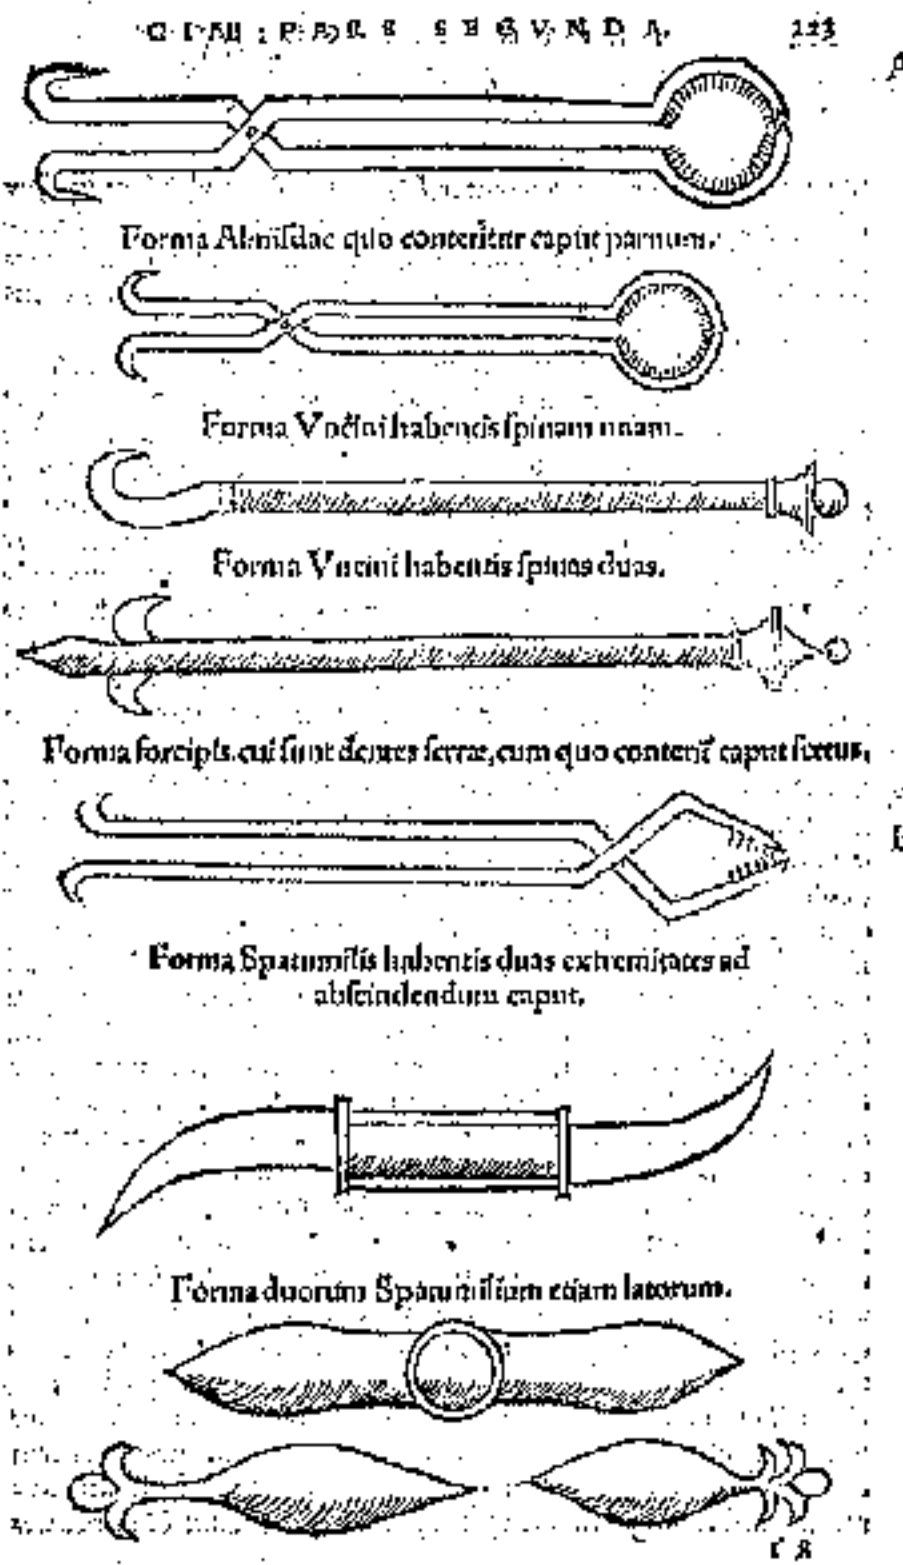 PARS SECVNDA. 223
Forma Almiſdac quo conterit̃ur caput paruum.
Forma Vncini habentis ſpinam unam.
Forma Vncini habentis ſpinas duas.
Forma forcipis, cui ſunt dentes ſerræ, cum quo conterit̃ caput fœtus.
Forma Spatumilis habentis duas extremitates ad
abſcindendum caput.
Forma duorum Spatumilium etiam latorum.